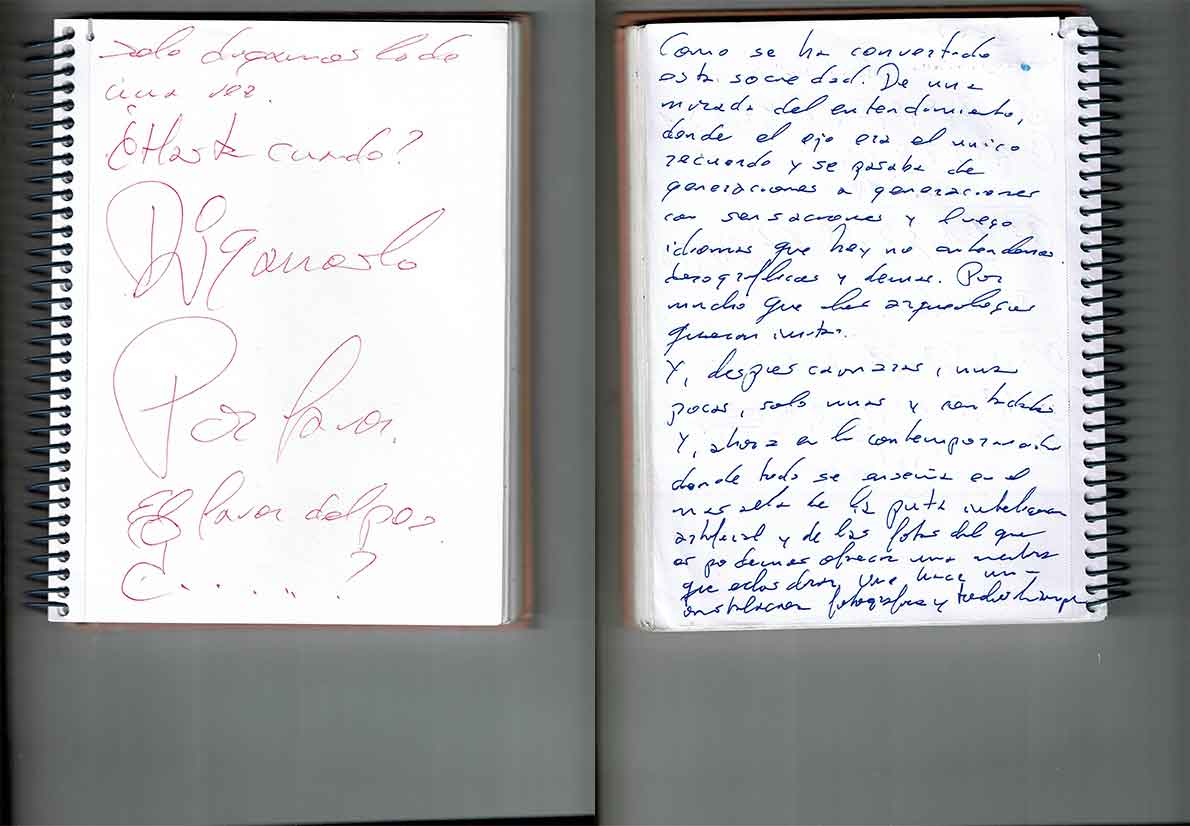 solo digamos todo
una vez.
¿Hasta cuando?
Digamoslo
Por favor.
El favor del por
¿......?
Como se ha convertido
esta sociedad. De una
mirada del entendimiento,
donde el ojo era el unico
recuerdo y se pasaba de
generaciones a generaciones
con sensaciones y luego
idiomas que hoy no entendemos
y demas. Por
mucho que los arqueologos
quieran
Y, despues camaras, unas
pocas, solo unas y contadas
Y, ahora en la
donde todo se enseña en el
mas alla de la puta
artificial y de las fotos del que
os podemos ofrecer una
que hace un
fotografica y